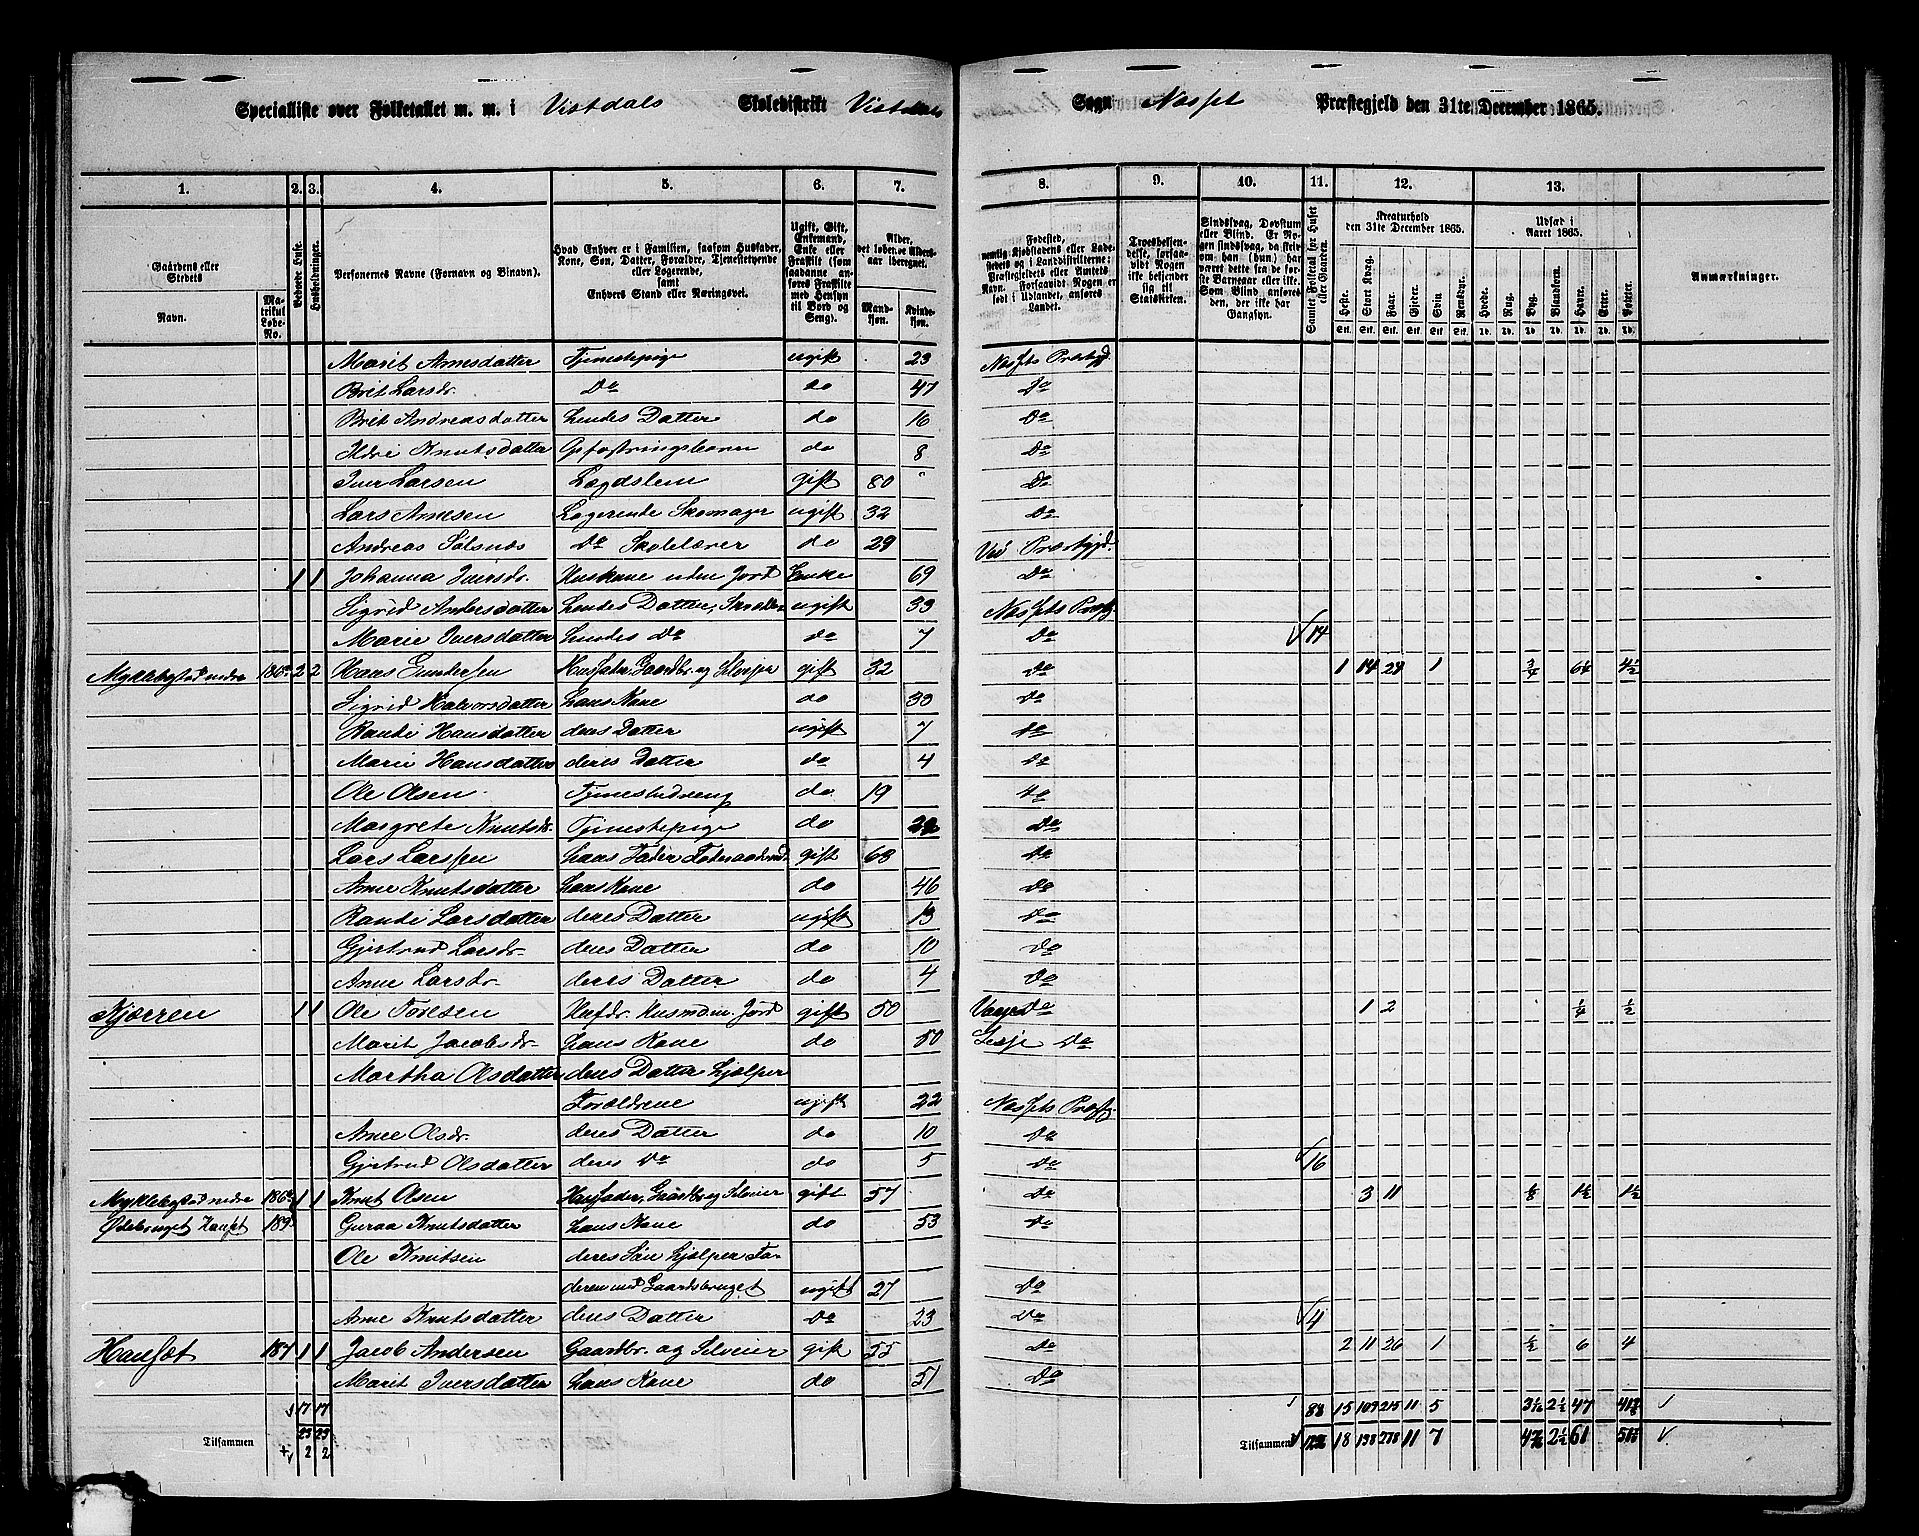 Specialliste over Folketallet m. m. i Vistdals Skoledistrikt Vistdals Sogn Næsset Præstegjeld den 31te December 1865.
1. 2. 3. 4. 5. 6. 7. 8. 9. 10. 11. 12. 13.
Gaardens eller Stedets
Navn.
Matrikul Løbe-No.
Beboede Huse.
Husholdninger.
Personernes Navne (Fornavn og Binavn).
Hvad Enhver er i Familien, saasom Husfader, Kone, Søn, Datter, Forældre, Tjenestetyende eller Logerende, samt Enhvers Stand eller Næringsvei.
Ugift, Gift, Enkemand, Enke eller Fraskilt (som saadanne anføres Fraskilte med Hensyn til Bord og Seng).
Alder, det løbende Alders-aar iberegnet.
Mandkjøn. Kvindekjøn.
Anmærkninger.
Kreaturhold den 31te December 1865.
Udsæd i Aaret 1865.
Heste. Stort Kvæg. Faar. Gjeder. Svin. Rensdyr. Hvede. Rug. Byg. Blandkorn. Havre. Erter. Poteter.
Marit Arnesdatter Tjenestepige ugift 23 Næssets Præstgd.
Brit Larsdr. Do do 47 Do
Brit Andreasdatter hendes Datter do 16 Do
Ildri Knutsdatter Opfostringsbarn do 8 Do
Iver Larsen Lægdslem gift 80 Do
Lars Arnesen Logerende Skomager ugift 32 Do
Andreas Sølsnæs Do Skolelærer do 29 Veø Præstgjd.
1 1 Johanna Iversdr. Huskone uden Jord Enke 69 Do
Sigrid Andersdatter hendes Datter, ugift 33 Næssets Præstgj.
Marie Iversdatter hendes Do do 7 Do 14
Myklebostad nedre 186a 2 2 Hans Gundersen Husfader, Gaardbr. og Selveier gift 32 Do 1 14 28 1 3/4 4½
Sigrid Halvorsdatter hans Kone do 33 Do
Randi Hansdatter deres Datter ugift 7 Do
Marie Hansdatter deres Datter do 4 Do
Ole Olsen Tjenestedreng do 19 Do
Margrete Knutsdr. Tjenestepige do Do
Lars Larssen hans Fader Føderaadsmd. gift 68 Do
Anne Knutsdatter hans Kone do 46 Do
Randi Larsdatter deres Datter ugift 13 Do
Gjertrud Larsdr. deres Datter do 10 Do
Anne Larsdr. deres Datter do 4 Do
Kjærren 1 1 Ole Toresen Husfdr. Husmd m. Jord gift 50 Vaage Do 1 2 ¼ ½
Marit Jacobsdr. hans Kone do 50 Lesje Do
Martha Olsdatter deres Datter hjælper
Forældrene ugift 22 Næssets Præstgj.
Anne Olsdr. deres Datter do 10 Do
Gjertrud Olsdatter deres Do do 5 Do 16
Myklebostad nedre 186b 1 1 Knut Olsen Husfader, Gaardbr og Selveier gift 57 Do 3 11 ⅛ 1½ 1½
Ødebruget Hanset 189 Guraa Knutsdatter hans Kone do 53 Do
Ole Knutsen deres Søn hjælper Fa-
deren med Gaardsbruget ugift 27 Do
Anne Knutsdatter deres Datter Do 23 Do 4
Hanset 187 1 1 Jacob Andersen Gaardbr. og Selveier gift 55 Do 2 11 26 1 ½ 6 4
Marit Iversdatter hans Kone do 51 Do
17 17 88 15 109 215 11 5 2½ 47
Tilsammen 23 23 Tilsammen 18 138 278 11 7 2½ 61
2 2